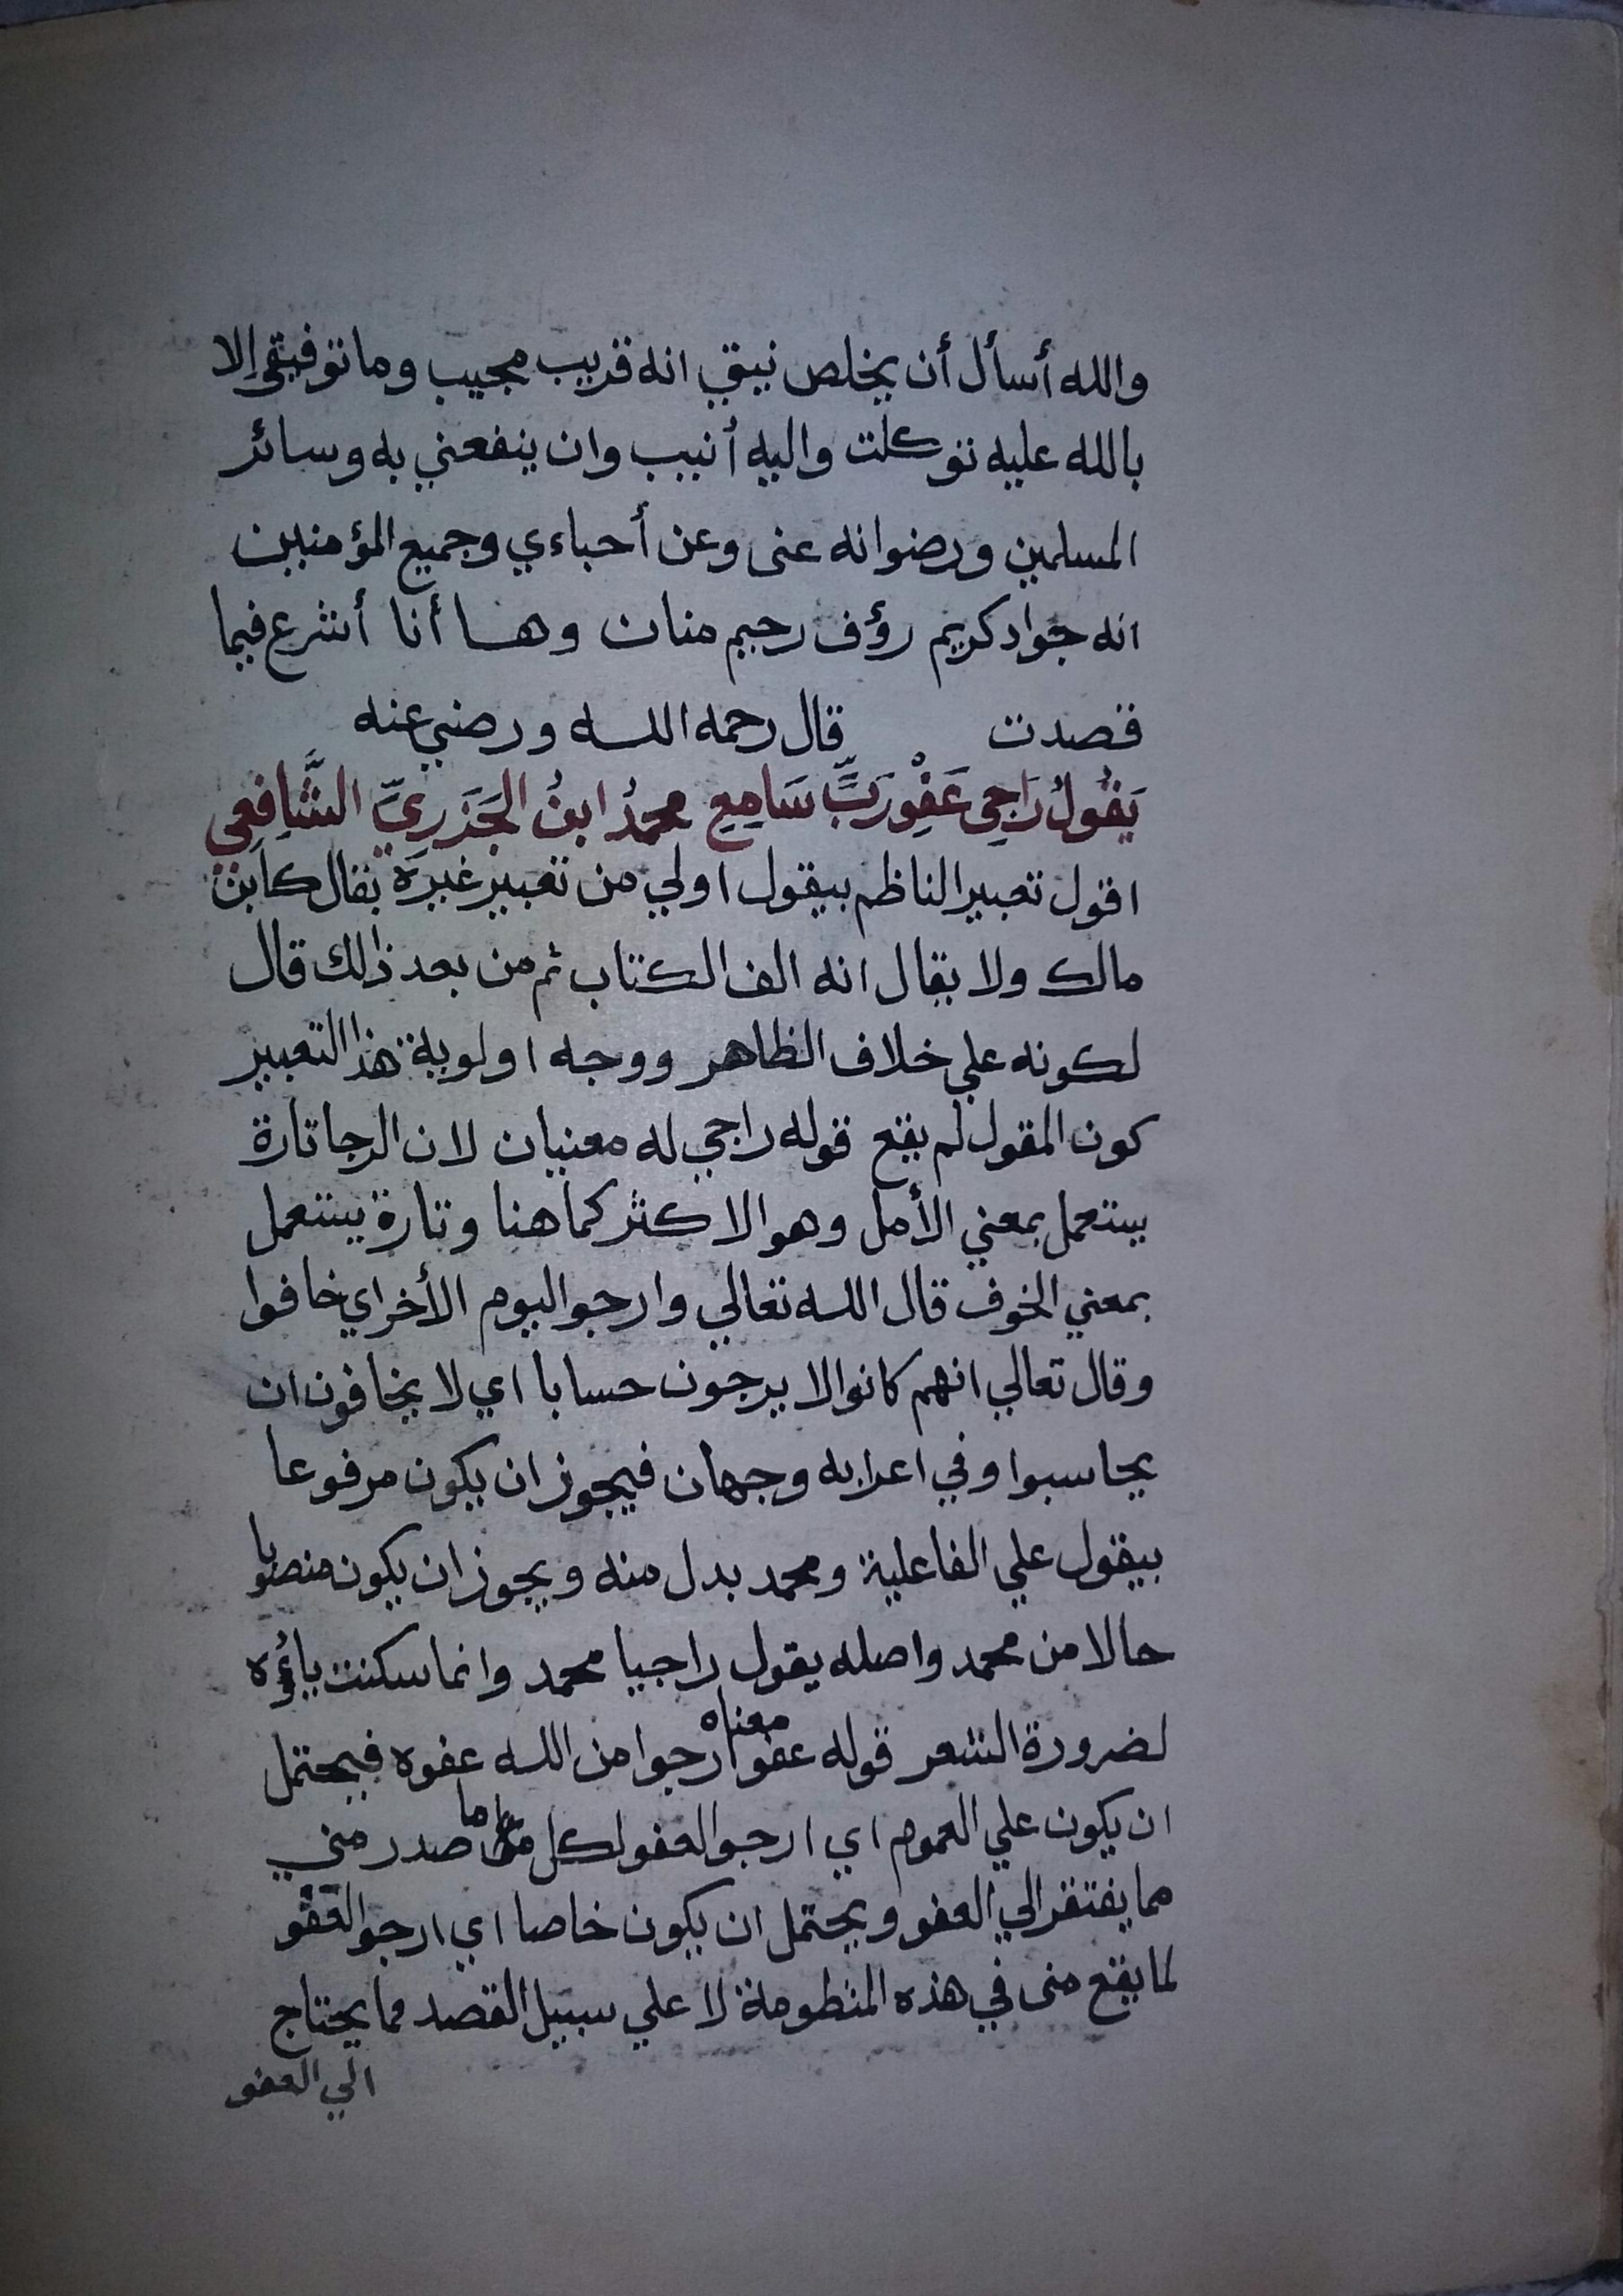 والله أسأل أن يخلص نيتي انه قريب مجيب وما توفيقي إلا
بالله عليه توكلت واليه أنيب وان ينفعني به وسائر
المسلمين ورضوانه عنى وعن أحباءي وجميع المؤمنين
انه جواد كريم رؤف رحيم منان وها أنا أشرع فيما
قصدت قال رحمه الله ورضي عنه
يَقُولُ رَاجِي عَفْوِ رَبٍّ سَامِعِ محمدُ ابنُ الجَزَرِيِّ الشَّافِعِي
اقول تعبير الناظم بيقول اولي من تعبير غيره بقال كابن
مالك ولا يقال انه الف الكتاب ثم من بعد ذلك قال
لكونه علي خلاف الظاهر ووجه اولوية هذا التعبير
كون المقول لم يقع قوله راجي له معنيان لان الرجا تارة
يستعمل بمعني الأمل وهو الاكثر كما هنا وتارة يستعمل
بمعني الخوف قال الله تعالي وارجوا اليوم الأخر اي خافوا
وقال تعالي انهم كانوا لا يرجون حسابا اي لا يخافون ان
يحاسبوا وفي اعرابه وجهان فيجوز ان يكون مرفوعا
بيقول علي الفاعلية ومحمد بدل منه ويجوز ان يكون منصوبا
حالا من محمد واصله يقول راجيا محمد وانما سكنت ياؤه
لضرورة الشعر قوله عفو معناه ارجوا من الله عفوه فيحتمل
ان يكون علي العموم اي ارجوا العفو لكل ما صدر مني
مما يفتقر الي العفو ويحتمل ان يكون خاصا اي ارجوا العَفْو
لما يقع منى في هذه المنظومة لا علي سبيل القصد مما يحتاج
الي العفو